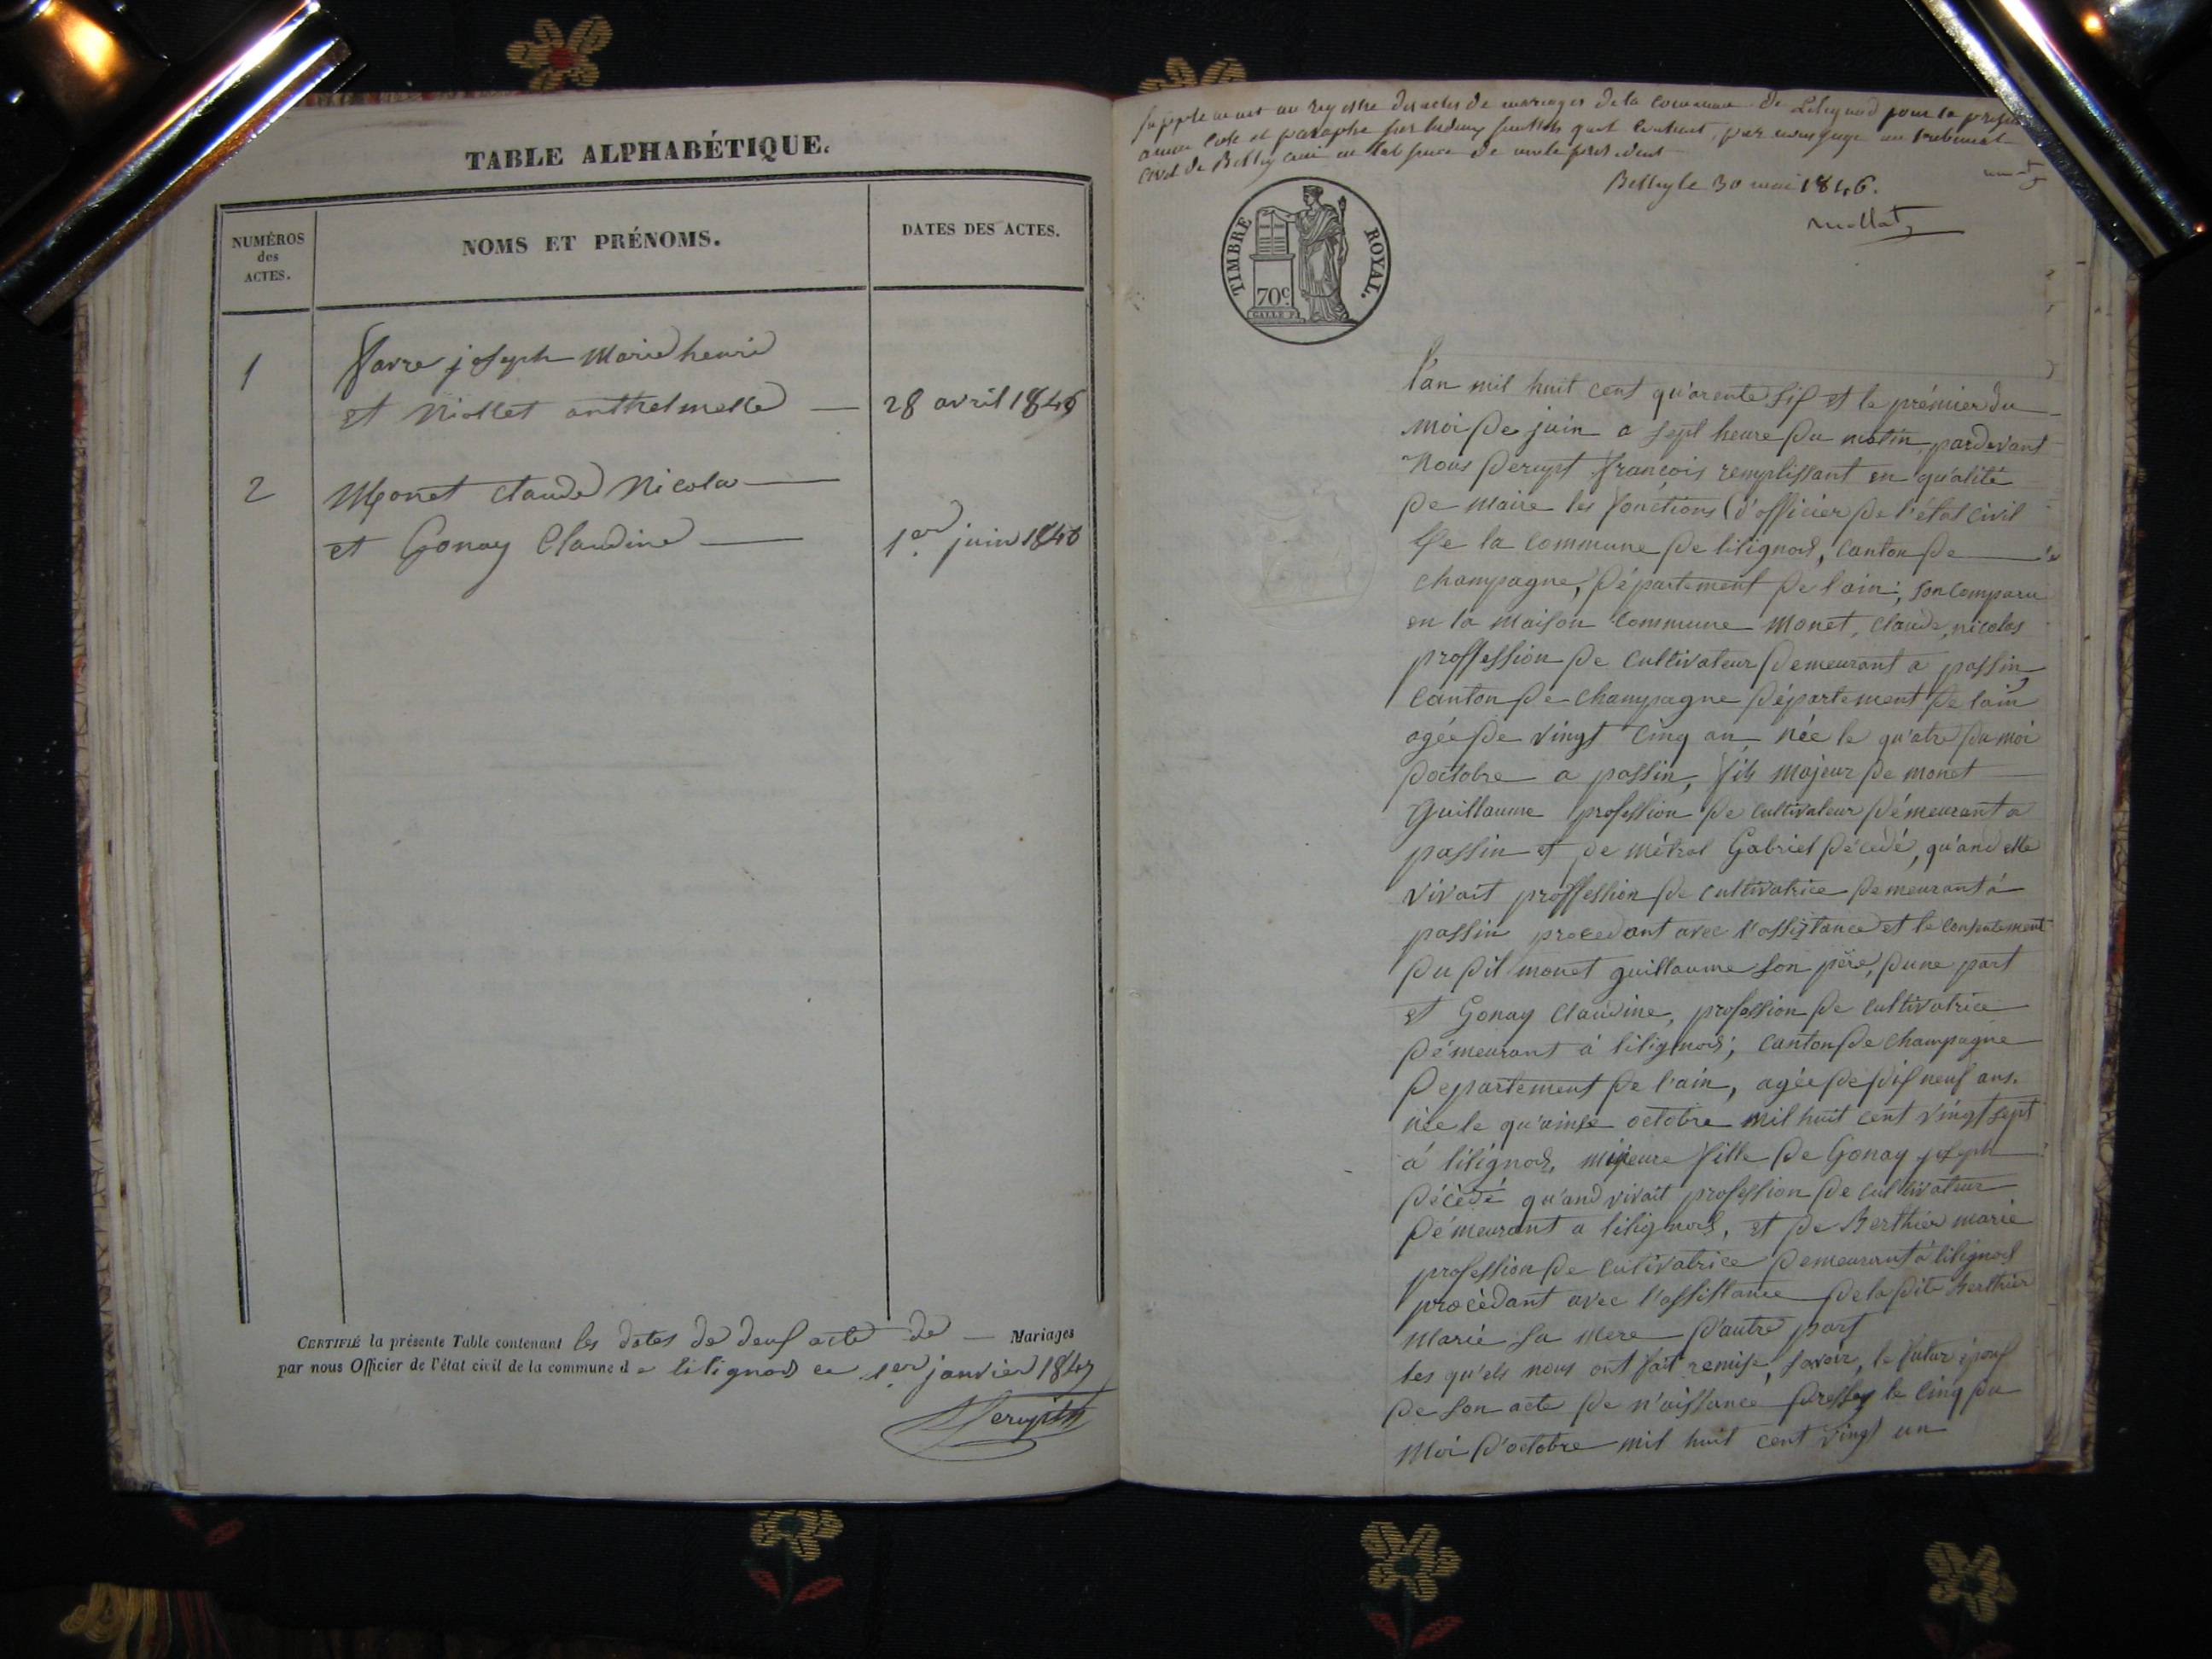 TABLE ALPHABÉTIQUE.
NUMÉROS
des
ACTES.
NOMS ET PRÉNOMS.
DATES DES ACTES.
1
favre joseph Marie henri
et Niollet anthelmette — 28 avril 1846
2
Monet Claude Nicolas —
et Gonay Claudine — 1er juin 1846
CERTIFIÉ la présente Table contenant les dates de deux acte de — Mariages
par nous Officier de l'état civil de la commune de lilignod ce 1er janvier 1847
Supplement au registre des actes de mariages de la commune de Lilignod pour la presente
année Coté et paraphé par
civil de Belley en l'absence de president
Belley le 30 mai 1846.
TIMBRE ROYAL.
70c
l'an mil huit cent qu'arente six et le prémier du
moi de juin a sept heure du matin, pardevant
Nous françois remplissant en qu'alité
de maire les fonctions d'officier de l'état civil
de la commune de lilignod, canton de
champagne, département de l'ain, son comparu
en la maison commune Monet, claude, nicolas
proffession de cultivateur demeurant a passin,
canton de champagne département de l'ain
agée de vingt cinq an née le qu'atre du moi
d'octobre a passin, fils majeur de monet
Guillaume profession de cultivateur démeurant a
passin et de métral Gabriel décedé, qu'and elle
vivait proffession de cultivatrice demeurant à
passin procedant avec l'assistance et le consentement
du dit monet guillaume son père, d'une part
et Gonay Claudine, profession de cultivatrice
démeurant à lilignod, canton de champagne
departement de l'ain, agée de dix neuf ans.
née le qu'ainse octobre mil huit cent vingt sept
à lilignod, mineure fille de Gonay joseph
décèdé qu'and vivait profession de cultivateur
démeurant a lilignod, et de Berthier marie
profession de cultivatrice demeurant à lilignod
procèdant avec l'assistance de la dite Berthier
Marie sa mere d'autre part
les qu'els nous ont fait remise, savoir, le futur époux
de son acte de n'aissance le cinq du
Moi d'octobre mil huit cent vingt un